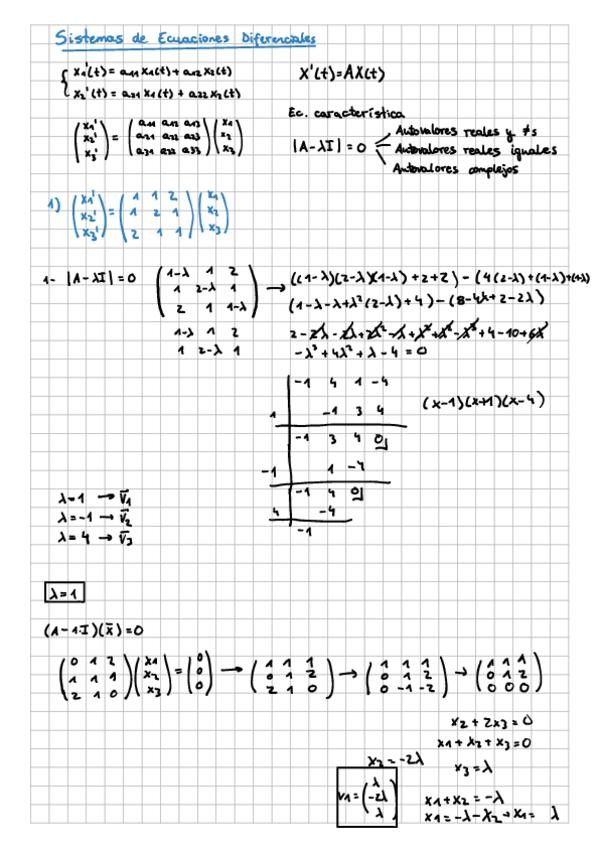 Sistemas de Ecuaciones Diferenciales
{ x1'(t) = a11 x1(t) + a12 x2(t)
x2'(t) = a21 x1(t) + a22 x2(t)
X'(t) = AX(t)
(x1' x2' x3') = (a11 a12 a13
a21 a22 a23
a31 a32 a33) (x1 x2 x3)
Ec. característica
|A-λI| = 0
Autovalores reales y ≠s
Autovalores reales iguales
Autovalores complejos
1) (x1' x2' x3') = (1 1 2
1 2 1
2 1 1) (x1 x2 x3)
1- |A-λI| = 0
(1-λ 1 2
1 2-λ 1
2 1 1-λ)
1-λ 1 2
1 2-λ 1
→ ((1-λ)(2-λ)(1-λ)+2+2) - (4(2-λ)+(1-λ)+(1-λ)
(1-λ-λ+λ²(2-λ)+4) - (8-4λ+2-2λ)
2-2λ-2λ+2λ²-λ+λ²+λ²-λ³+4-10+6λ
-λ³+4λ²+λ-4 = 0
-1 4 1 -4
1 -1 3 4
-1 3 4 0
-1 1 -4
-1 4 0
4 -4
-1
(x-1)(x+1)(x-4)
λ=1 → v̄1
λ=-1 → v̄2
λ=4 → v̄3
λ=1
(A-1·I)(x̄)=0
(0 1 2
1 1 1
2 1 0) (x1 x2 x3) = (0 0 0) → (1 1 1
0 1 2
2 1 0) → (1 1 1
0 1 2
0 -1 -2) → (1 1 1
0 1 2
0 0 0)
x2 + 2x3 = 0
x1 + x2 + x3 = 0
x3 = λ
x2 = -2λ
v1 = (λ
-2λ
λ)
x1 + x2 = -λ
x1 = -λ - x2 → x1 = λ